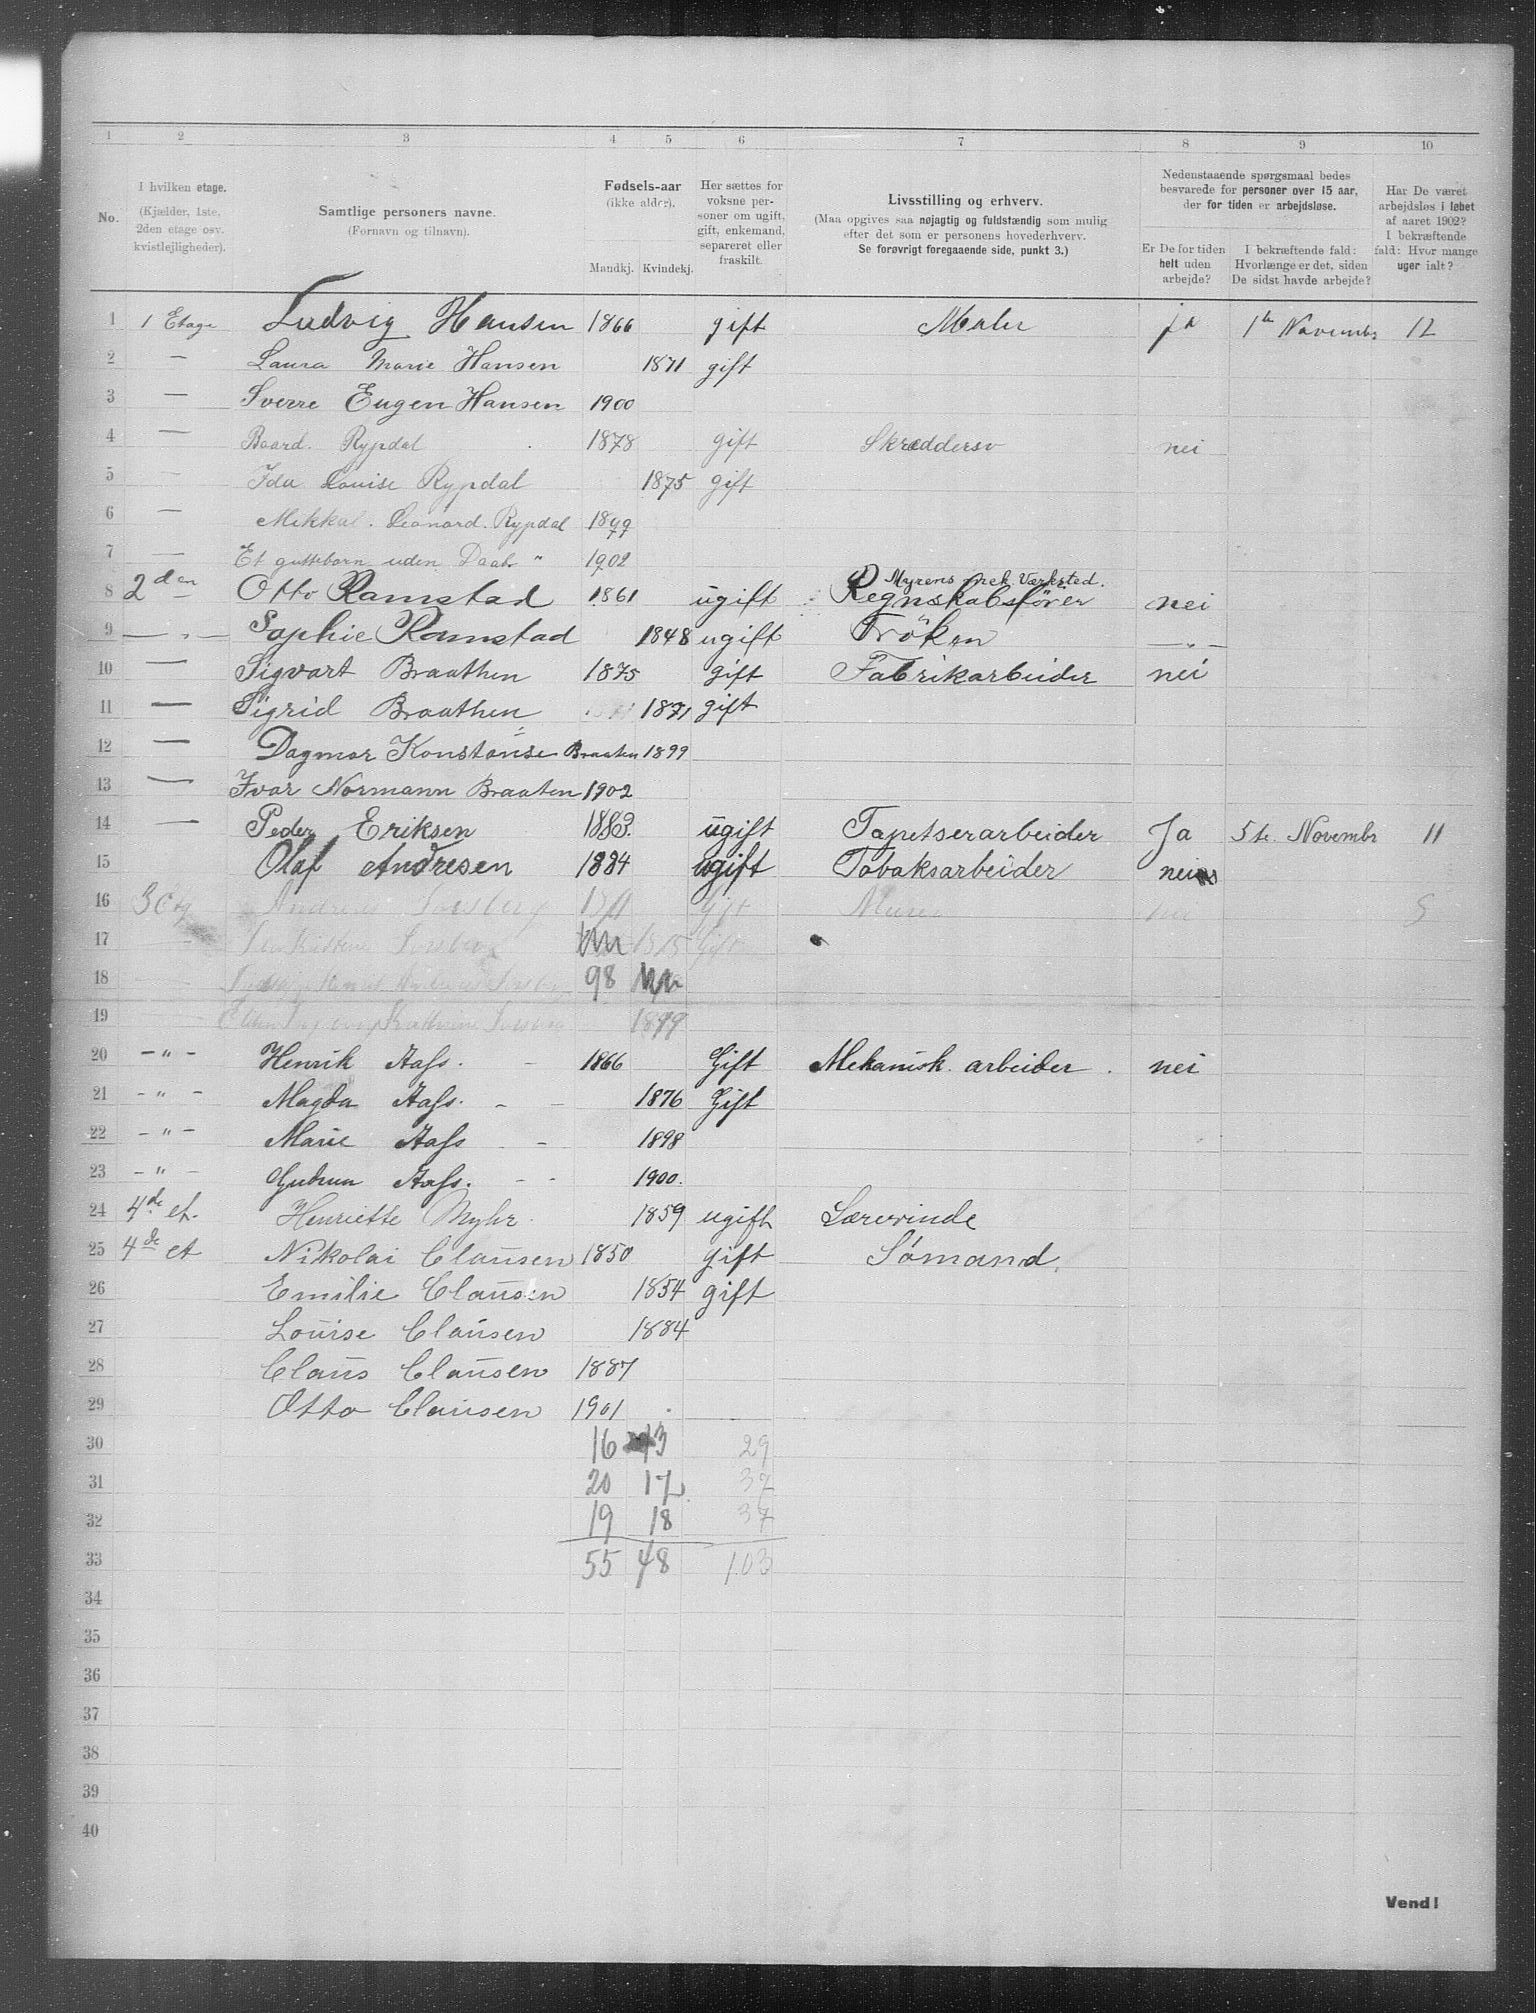 1 2 3 4 5 6 7 8 9 10
No.
I hvilken etage.
(Kjælder, 1ste, 2den etage osv. kvistlejligheder).
Samtlige personers navne.
(Fornavn og tilnavn).
Fødsels-aar
(ikke alder).
Mandkj. Kvindekj.
Her sættes for voksne personer om ugift, gift, enkemand, separeret eller fraskilt.
Livsstilling og erhverv.
(Maa opgives saa nøjagtig og fuldstændig som mulig
efter det som er personens hovederhverv.
Se forøvrigt foregaaende side, punkt 3.)
Nedenstaaende spørgsmaal bedes
besvarede for personer over 15 aar,
der for tiden er arbejdsløse.
Er De for tiden helt uden arbejde?
I bekræftende fald: Hvorlænge er det, siden De sidst havde arbejde?
Har De været arbejdsløs i løbet af aaret 1902? I bekræftende fald: Hvor mange uger ialt?
1 1 Etage Ludvig Hansen 1866 gift Maler ja 1te Novembr 12
2 — Laura Marie Hansen 1871 gift
3 — Sverre Eugen Hansen 1900
4 — Baard. Rypdal 1878 gift Skræddersv nei
5 — Ida Louise Rypdal 1875 gift
6 — Mikkal. Leonard. Rypdal 1899
7 — Et guttebarn uden Daab " 1902
Myrens mek Værksted.
8 2den Otto Ramstad 1861 ugift Regnskabsfører nei
9 — " — Sophie Ramstad 1848 ugift Frøken — " —
10 — Sigvart Braathen 1875 gift Fabrikarbeider nei
11 — Sigrid Braathen 1871 gift
12 — Dagmar Konstanse Braaten 1899
13 — Ivar Normann Braaten 1902
14 — Peder Eriksen 1883. ugift Tapetserarbeider Ja 5te. Novembr 11
15 Olaf Andresen 1884 ugift Tobaksarbeider nei
16 3 Etg Andreas gift Murer nei
17 gift
18 98
19 1899
20 – " – Henrik Aass. – 1866 Gift Mekanisk. arbeider . nei
21 – " – Magda Aass. – – 1876 Gift
22 – " – Marie Aass – 1898
23 – " – Gudrun Aass. – – 1900.
24 4de et. Henriette Myhr. 1859 ugift Lærerinde
25 4de et Nikolai Clausen 1850 gift Sømand.
26 Emilie Clausen 1854 gift
27 Louise Clausen 1884
28 Claus Clausen 1887
29 Otto Clausen 1901
30 16 13 29
31 20 17 37
32 19 18 37
33 55 48 103
34
35
36
37
38
39
40
Vend!